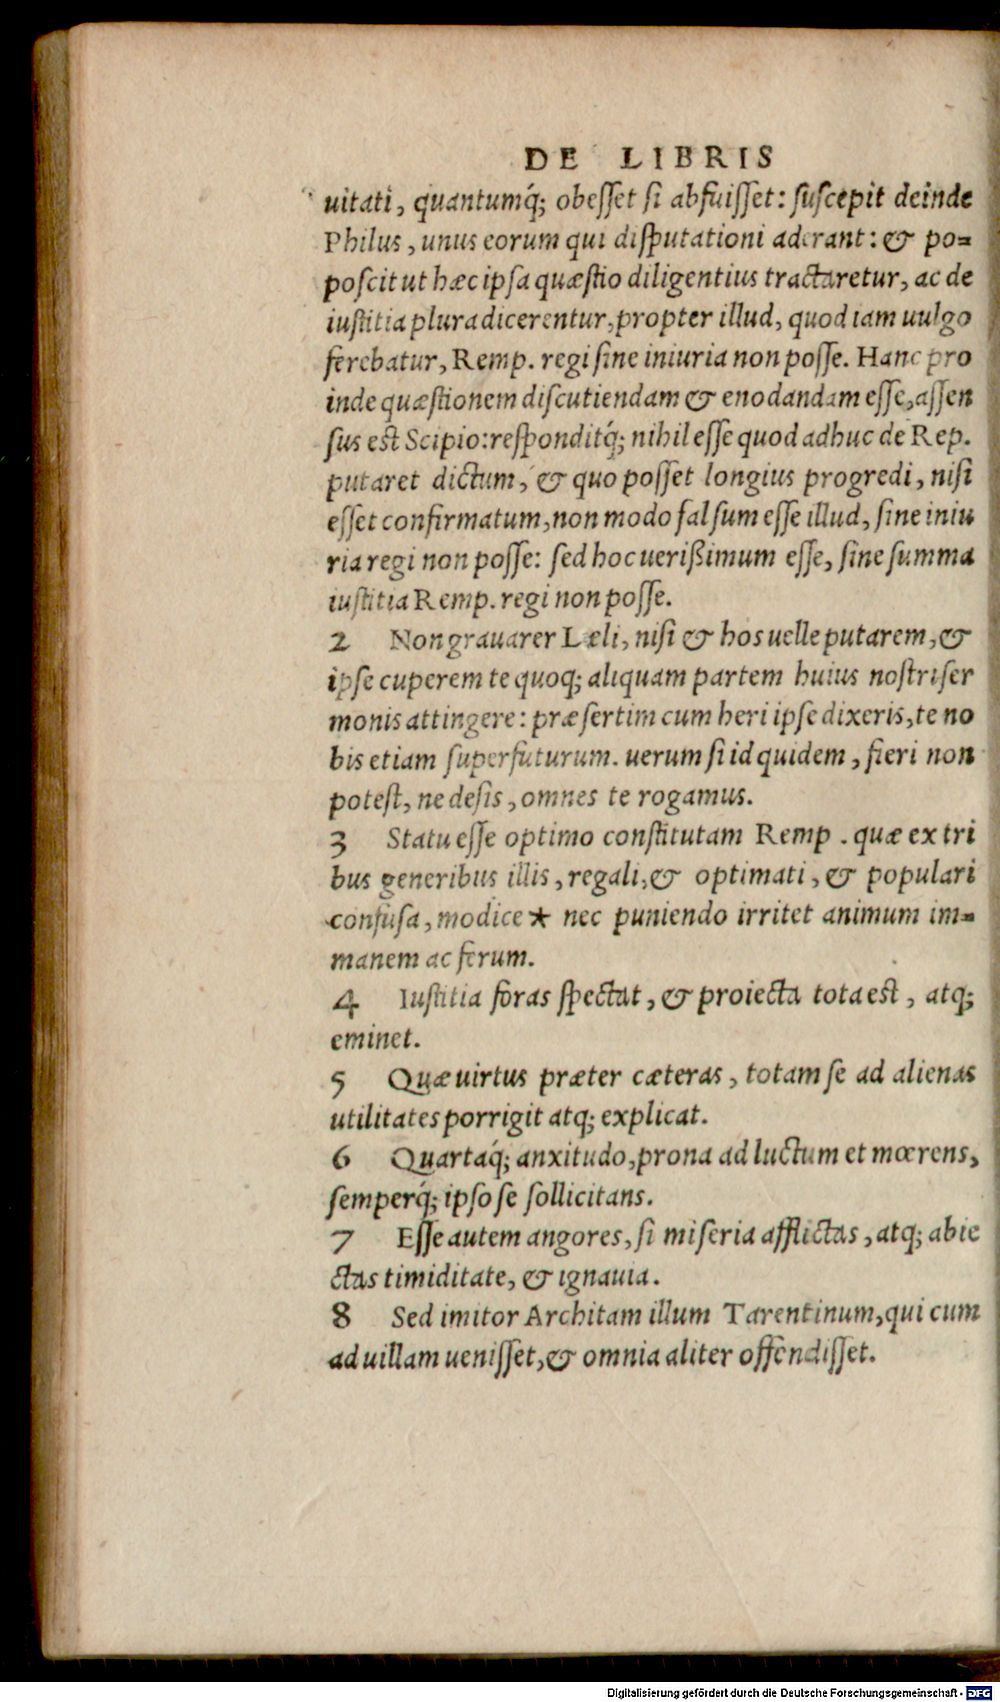 DE LIBRIS
uitati, quantumq́; obesſet ſi abfuiſſet: ſuſcepit deinde
Philus, unus eorum qui diſputationi aderant: & po=
poſcit ut hæc ipſa quæſtio diligentius tractaretur, ac de
iuſtitia plura dicerentur, propter illud, quod iam uulgo
ferebatur, Remp. regi ſine iniuria non poſſe. Hanc pro
inde quæſtionem diſcutiendam & enodandam eſſe, aſſen
ſus eſt Scipio: reſponditq́; nihil eſſe quod adhuc de Rep.
putaret dictum, & quo poſſet longius progredi, niſi
eſſet confirmatum, non modo falſum eſſe illud, ſine iniu
ria regi non poſſe: ſed hoc ueriſſimum eſſe, ſine ſumma
iuſtitia Remp. regi non poſſe.
2 Non grauarer Læli, niſi & hos uelle putarem, &
ipſe cuperem te quoq; aliquam partem huius noſtri ſer
monis attingere: præſertim cum heri ipſe dixeris, te no
bis etiam ſuperfuturum. uerum ſi id quidem, fieri non
poteſt, ne deſis, omnes te rogamus.
3 Statu eſſe optimo conſtitutam Remp. quæ ex tri
bus generibus illis, regali, & optimati, & populari
confuſa, modice * nec puniendo irritet animum im=
manem ac ferum.
4 Iuſtitia foras ſpectat, & proiecta tota eſt, atq;
eminet.
5 Quæ uirtus præter cæteras, totam ſe ad alienas
utilitates porrigit atq; explicat.
6 Quartaq́; anxitudo, prona ad luctum et mœrens,
ſemperq́; ipſo ſe ſollicitans.
7 Eſſe autem angores, ſi miſeria afflictas, atq; abie
ctas timiditate, & ignauia.
8 Sed imitor Architam illum Tarentinum, qui cum
ad uillam ueniſſet, & omnia aliter offendiſſet.
Digitalisierung gefördert durch die Deutsche Forschungsgemeinschaft - DFG